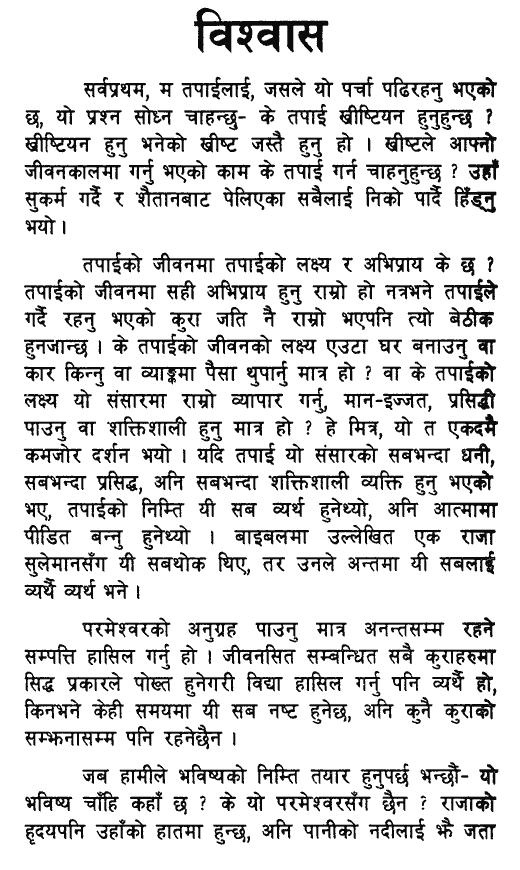 विश्वास
सर्वप्रथम, म तपाईलाई, जसले यो पर्चा पढिरहनु भएको
छ, यो प्रश्न सोध्न चाहन्छु- के तपाई ख्रीष्टियन हुनुहुन्छ ?
ख्रीष्टियन हुनु भनेको ख्रीष्ट जस्तै हुनु हो । ख्रीष्टले आफ्नो
जीवनकालमा गर्नु भएको काम के तपाई गर्न चाहनुहुन्छ ? उहाँ
सुकर्म गर्दै र शैतानबाट पेलिएका सबैलाई निको पार्दै हिँड्नु
भयो ।
तपाईको जीवनमा तपाईको लक्ष्य र अभिप्राय के छ ?
तपाईको जीवनमा सही अभिप्राय हुनु राम्रो हो नत्रभने तपाईले
गर्दै रहनु भएको कुरा जति नै राम्रो भएपनि त्यो बेठीक
हुनजान्छ । के तपाईको जीवनको लक्ष्य एउटा घर बनाउनु वा
कार किन्नु वा व्याङ्कमा पैसा थुपार्नु मात्र हो ? वा के तपाईको
लक्ष्य यो संसारमा राम्रो व्यापार गर्नु, मान-इज्जत, प्रसिद्धी
पाउनु वा शक्तिशाली हुनु मात्र हो ? हे मित्र, यो त एकदमै
कमजोर दर्शन भयो । यदि तपाई यो संसारको सबभन्दा धनी,
सबभन्दा प्रसिद्ध, अनि सबभन्दा शक्तिशाली व्यक्ति हुनु भएको
भए, तपाईको निम्ति यी सब व्यर्थ हुनेथ्यो, अनि आत्मामा
पीडित बन्नु हुनेथ्यो । बाइबलमा उल्लेखित एक राजा
सुलेमानसँग यी सबथोक थिए, तर उनले अन्तमा यी सबलाई
व्यर्थै व्यर्थ भने ।
परमेश्वरको अनुग्रह पाउनु मात्र अनन्तसम्म रहने
सम्पत्ति हासिल गर्नु हो । जीवनसित सम्बन्धित सबै कुराहरुमा
सिद्ध प्रकारले पोख्त हुनेगरी विद्या हासिल गर्नु पनि व्यर्थै हो,
किनभने केही समयमा यी सब नष्ट हुनेछ, अनि कुनै कुराको
सम्झनासम्म पनि रहनेछैन ।
जब हामीले भविष्यको निम्ति तयार हुनुपर्छ भन्छौं- यो
भविष्य चाँहि कहाँ छ ? के यो परमेश्वरसँग छैन ? राजाको
हृदयपनि उहाँको हातमा हुन्छ, अनि पानीको नदीलाई झै जता